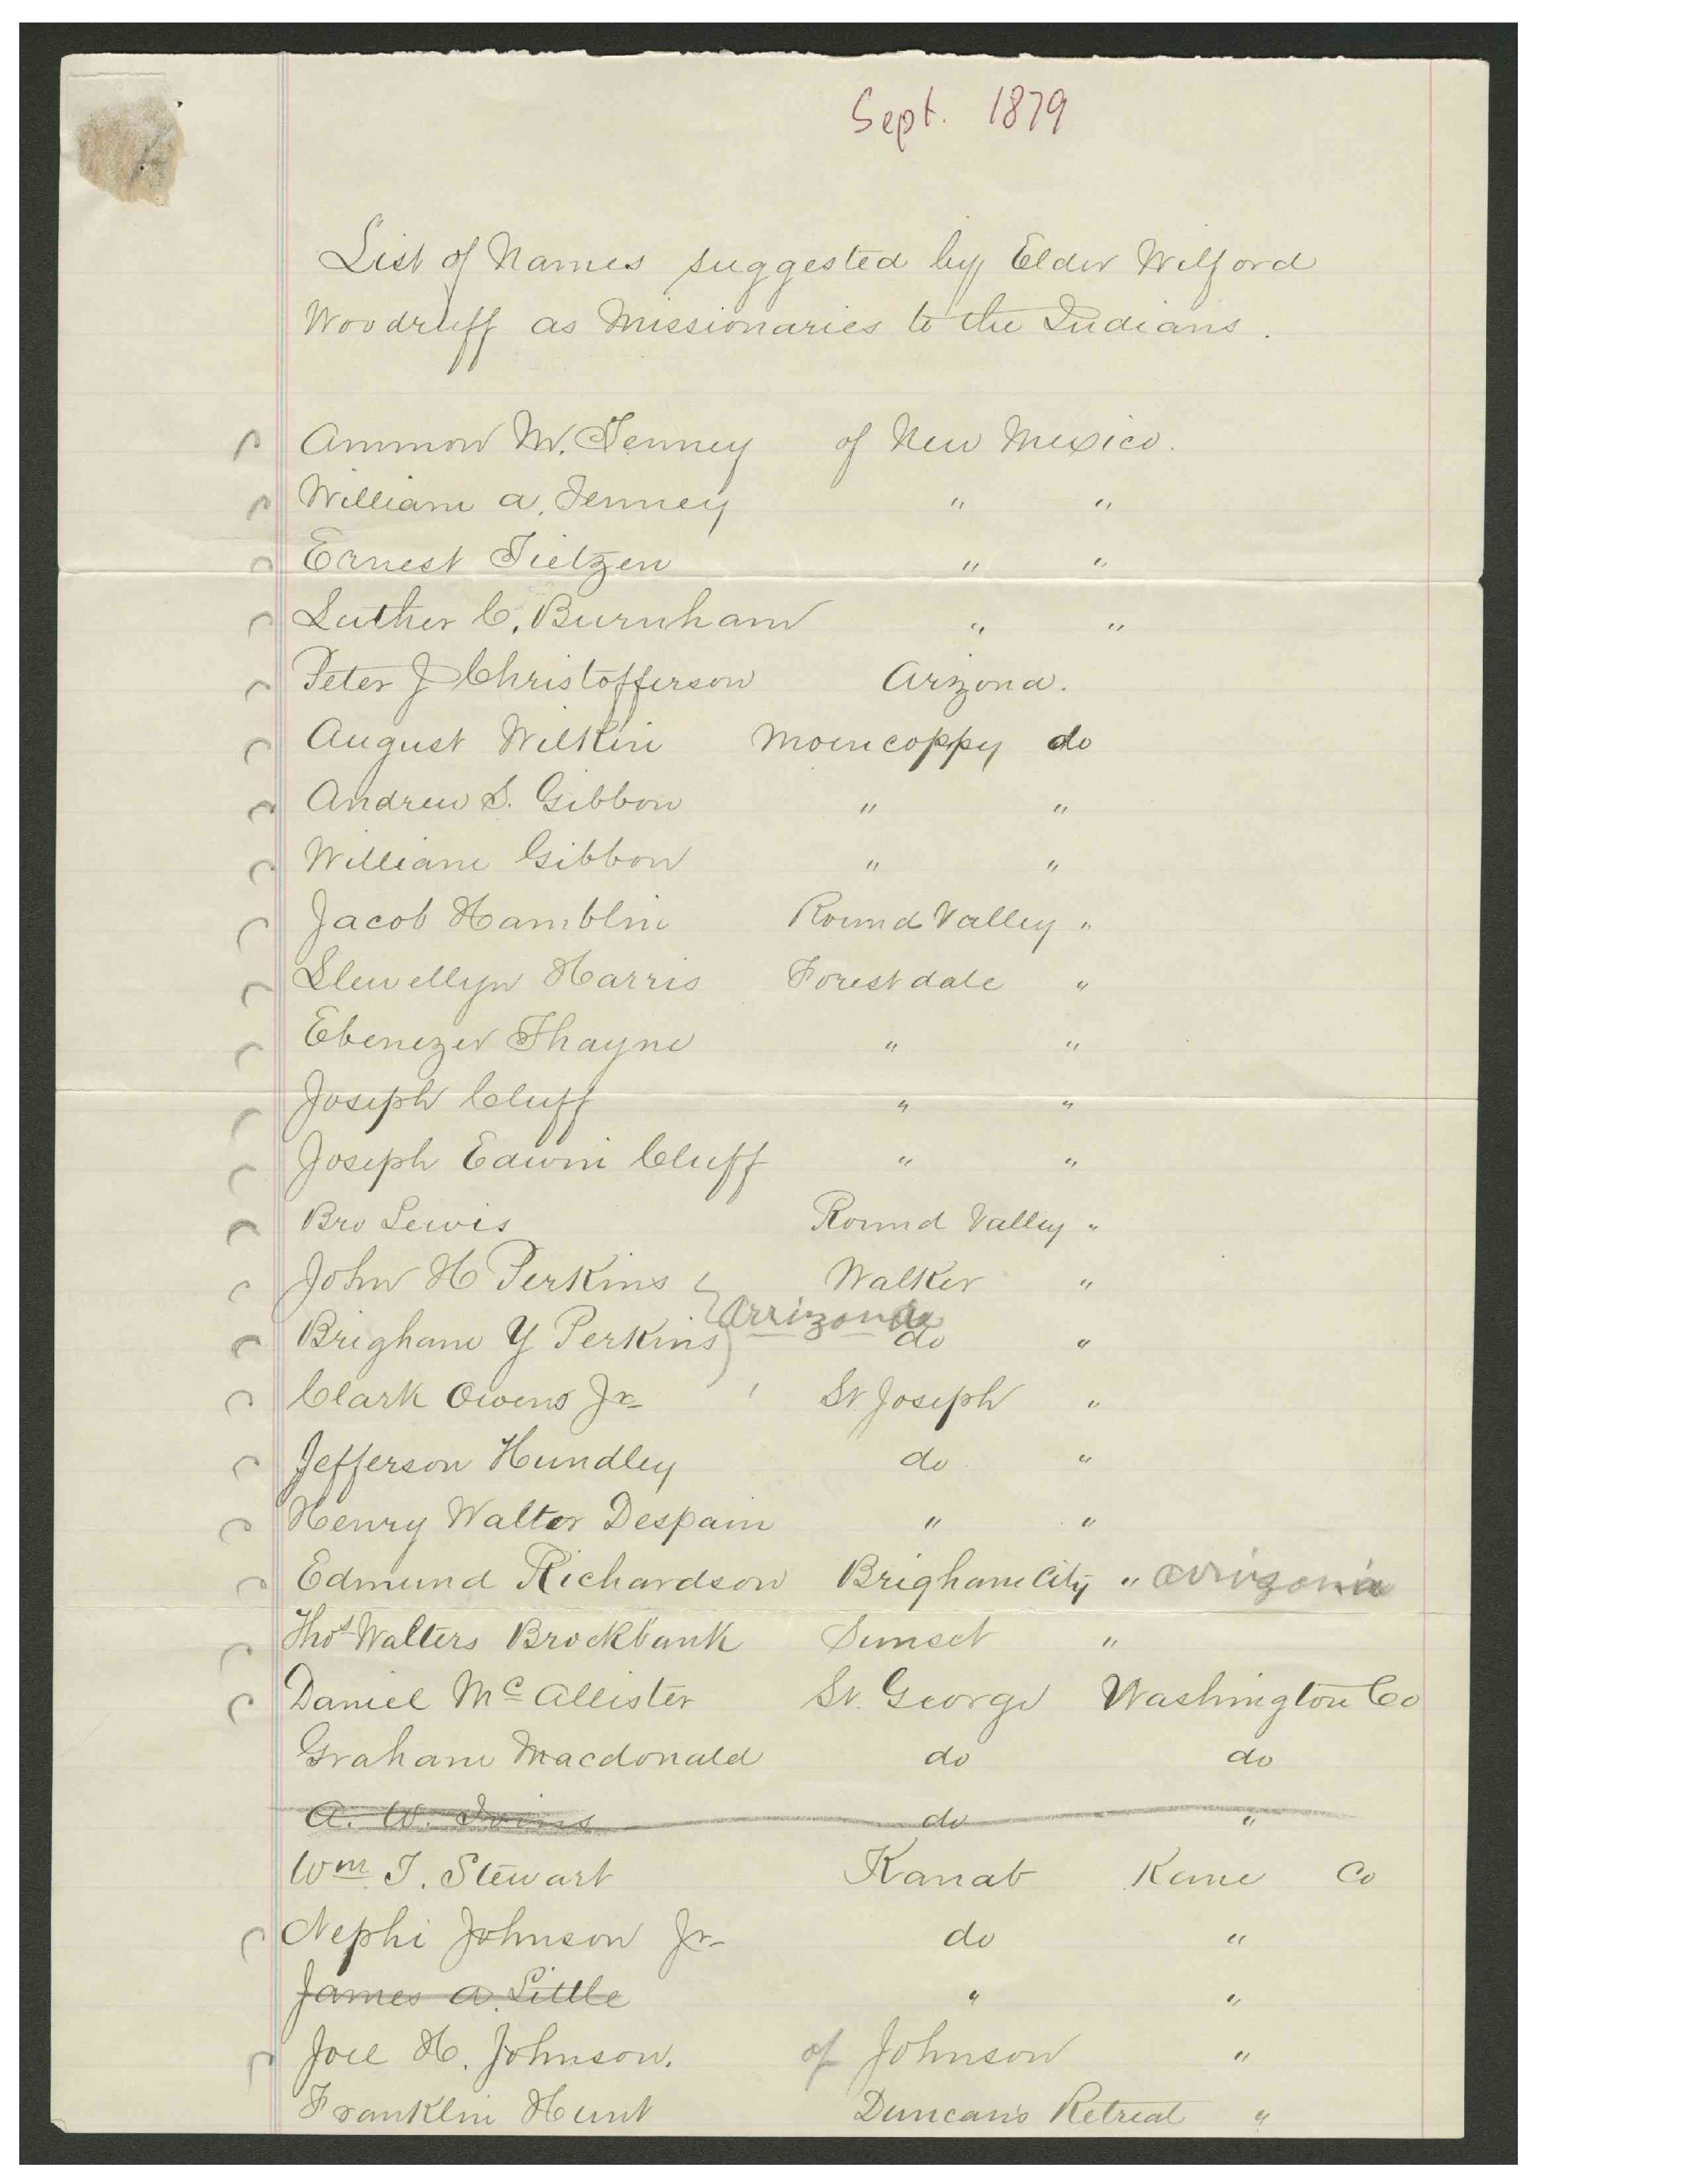 Sept. 1879
List of Names suggested by Elder Wilford
Woodruff as Missionaries to the Indians.
Ammon M. Tenney of New Mexico.
William A. Tenney " "
Ernest Tietzen " "
Luther C. Burnham " "
Peter J Christofferson Arizona.
August Wilkin Moencoppy do
Andrew S. Gibbon " "
William Gibbon " "
Jacob Hamblin Round Valley "
Llewellyn Harris Forestdale "
Ebenezer Thayne " "
Joseph Cluff " "
Joseph Edwin Cluff " "
Bro Lewis Round Valley "
John H Perkins Walker "
Arrizona
Brigham Y Perkins do "
Clark Owens Jr St. Joseph "
Jefferson Hundley do "
Henry Walter Despain " "
Edmund Richardson Brigham City " Arrizona
Thos Walters Brockbank Sunset "
Daniel Mc Allister St. George Washington Co
Graham Macdonald do do
A. W. Ivins do "
Wm. T. Stewart Kanab Kane Co
Nephi Johnson Jr do "
James A. Little " "
Joel H. Johnson. of Johnson "
Franklin Hunt Duncan's Retreat "